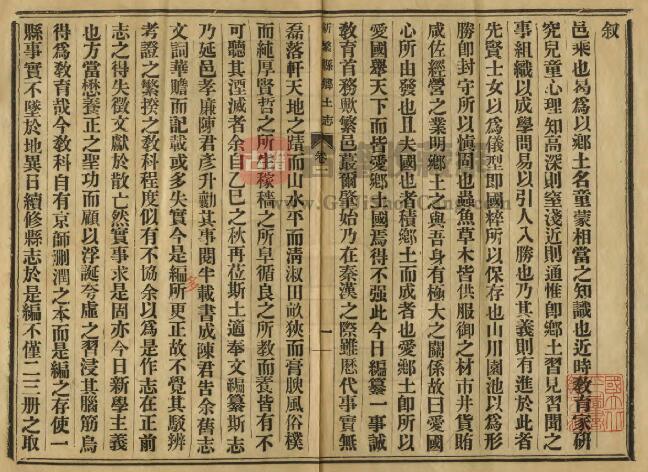 敘
邑乘也曷為以鄉土名童蒙相當之知識也近時教育家研
究兒童心理知高深則窒淺近則通惟卽鄉土習見習聞之
事組織以成學問易以引人入勝也乃其義則有進於此者
先賢士女以為儀型卽國粹所以保存也山川園池以為形
勝卽封守所以愼固也蟲魚草木皆供服御之材市井貨賄
咸佐經營之業明鄉土之與吾身有極大之關係故曰愛國
心所由發也且夫國也者積鄉土而成者也愛鄉土卽所以
愛國舉天下而皆愛鄉土國焉得不强此今日編纂一事誠
教育首務歟繁邑蕞爾肇始乃在秦漢之際雖歷代事實無
新繁縣鄉土志
卷
一
磊落軒天地之蹟而山水平而淸淑田畝狹而膏腴風俗樸
而純厚賢哲之所生稼穡之所阜循良之所教而養皆有不
可聽其湮滅者余自乙巳之秋再莅斯土適奉文編纂斯志
乃延邑孝廉陳君彥升勷其事閱半載書成陳君告余舊志
文詞華贍而記載或多失實今是編所更正故不覺其駁辨
多
考證之繁揆之教科程度似有不協余以為是作志在正前
志之得失徵文獻於散亡然實事求是固亦今日新學主義
也方當懋養正之聖功而顧以浮誕夸虛之習浸其腦筋烏
得為教育哉今教科自有京師删潤之本而是編之存使一
縣事實不墜於地異日續修縣志於是編不僅二三册之取